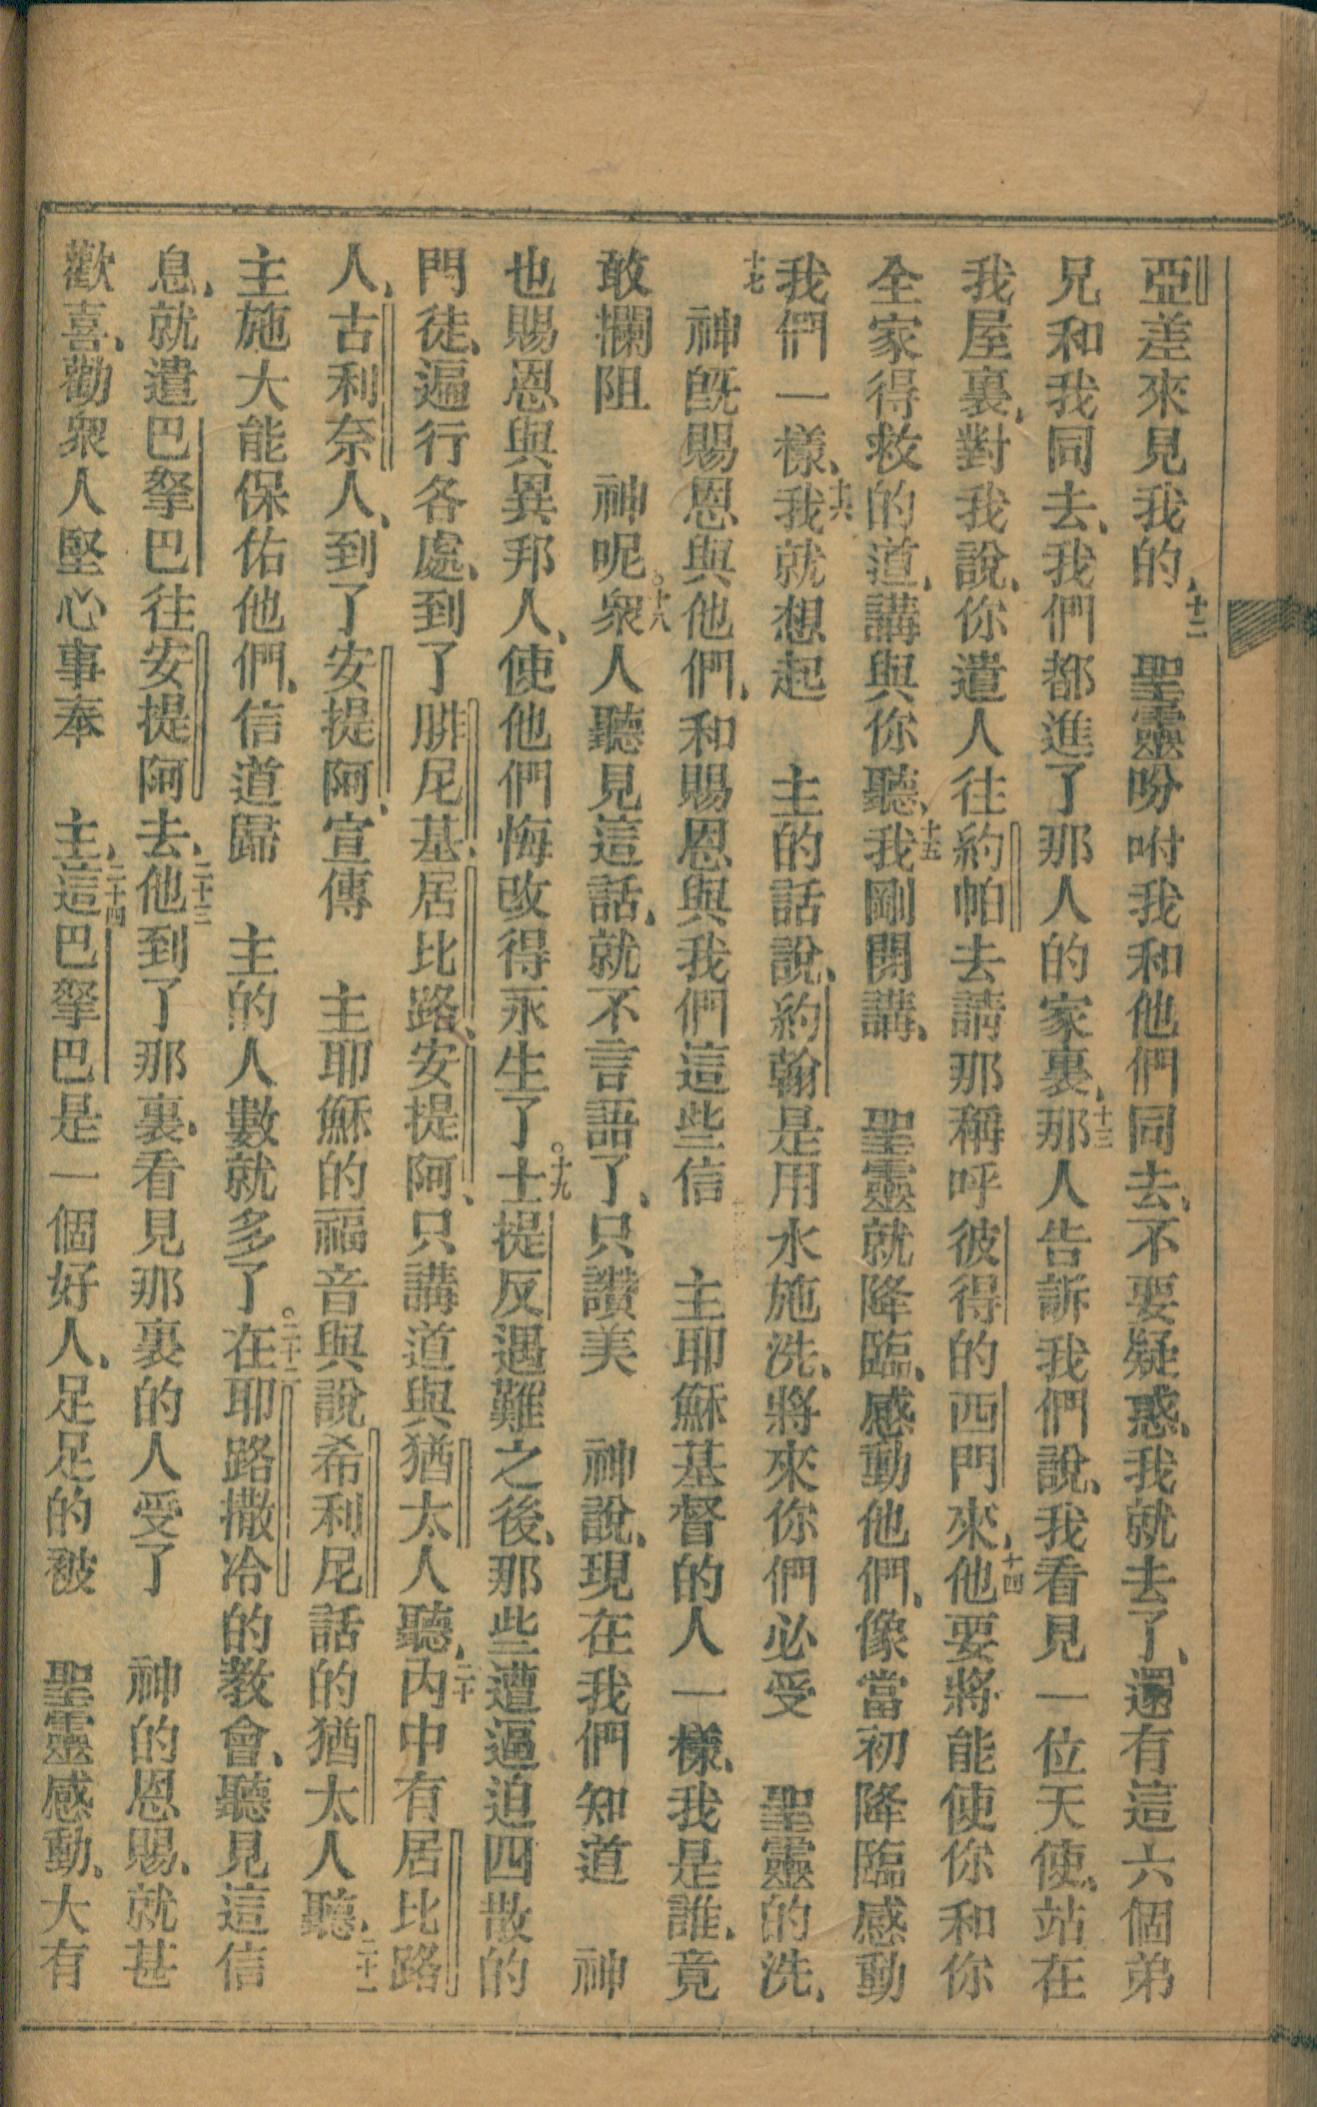 亞差來見我的、十二　聖靈吩咐我和他們同去、不要疑惑、我就去了、還有這六個弟
兄和我同去、我們都進了那人的家裏、十三那人告訴我們說、我看見一位天使、站在
我屋裏、對我說、你遣人往約帕去請那稱呼彼得的西門來、十四他要將能使你和你
全家得救的道、講與你聽、十五我剛開講、　聖靈就降臨、感動他們、像當初降臨感動
我們一樣、十六我就想起　主的話說、約翰是用水施洗、將來你們必受　聖靈的洗、
十七　神旣賜恩與他們、和賜恩與我們這些信　主耶穌基督的人一樣、我是誰、竟
敢攔阻　神呢。十八衆人聽見這話、就不言語了、只讚美　神說、現在我們知道　神
也賜恩與異邦人、使他們悔改得永生了。十九士提反遇難之後、那些遭逼迫四散的
門徒、遍行各處、到了腓尼基、居比路、安提阿、只講道與猶太人聽、二十內中有居比路
人、古利奈人、到了安提阿、宣傳　主耶穌的福音與說希利尼話的猶太人聽、二十一
主施大能保佑他們、信道歸　主的人數就多了。二十二在耶路撒冷的教會、聽見這信
息、就遣巴拏巴往安提阿去、二十三他到了那裏、看見那裏的人受了　神的恩賜、就甚
歡喜、勸衆人堅心事奉　主、二十四這巴拏巴是一個好人、足足的被　聖靈感動、大有